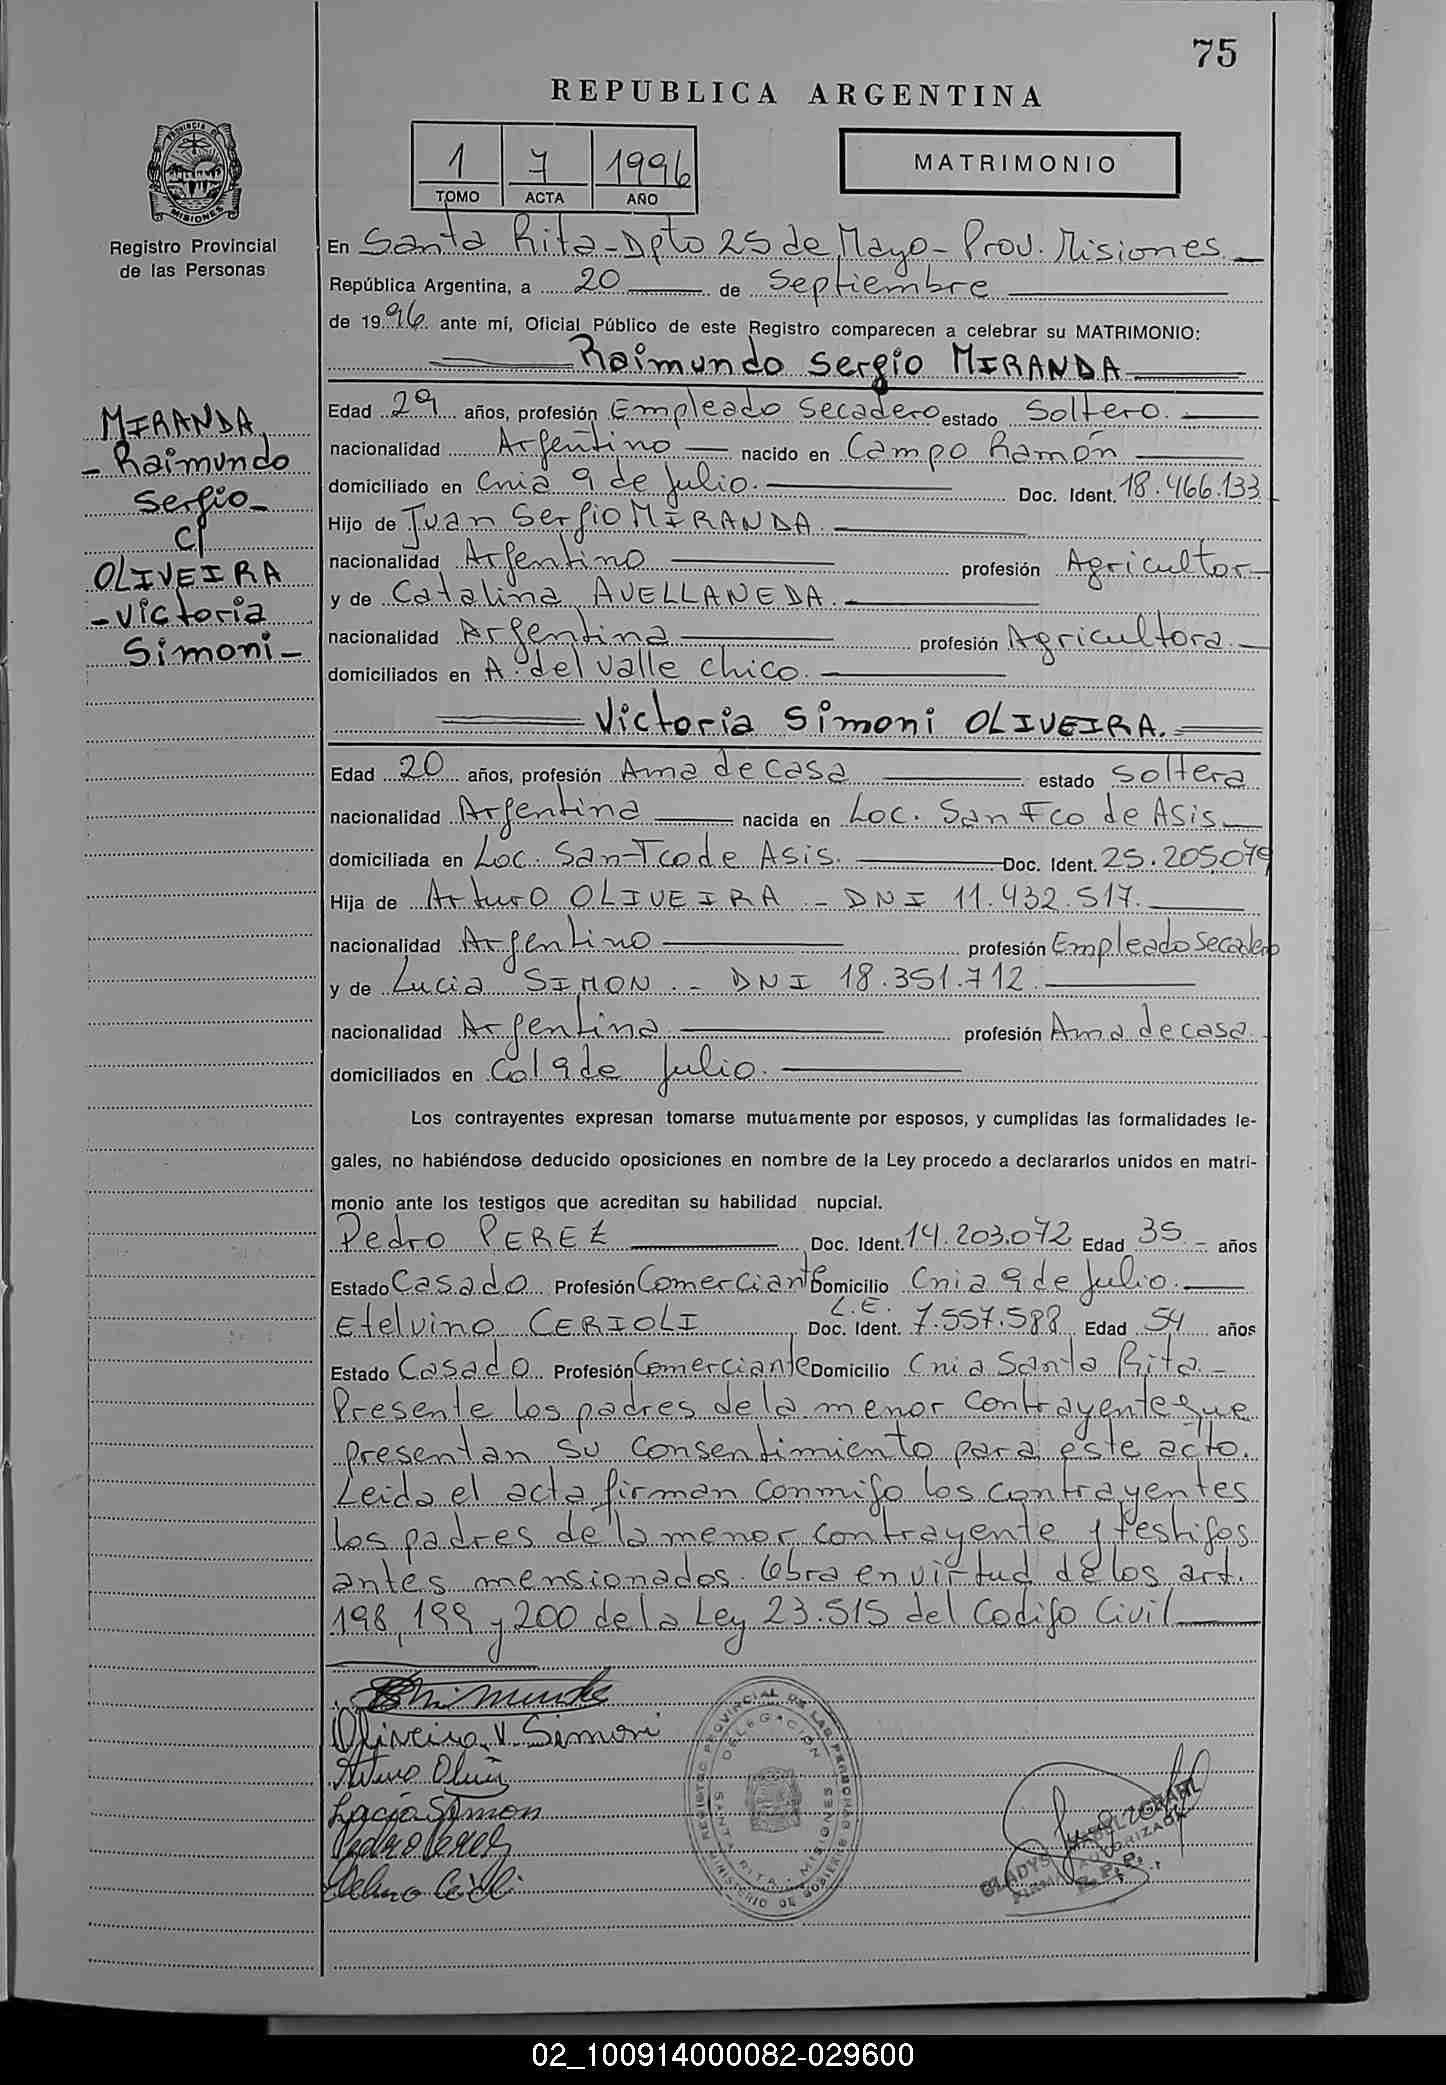 75
REPUBLICA ARGENTINA
PROVINCIA DE
MISIONES
Registro Provincial
de las Personas
1 7 1996
TOMO ACTA AÑO
MATRIMONIO
En Santa Rita - Dpto 25 de Mayo - Prov. Misiones
República Argentina, a 20 de Septiembre
de 1996 ante mí, Oficial Público de este Registro comparecen a celebrar su MATRIMONIO:
Raimundo Sergio MIRANDA
MIRANDA,
- Raimundo
Sergio -
C/
OLIVEIRA
- Victoria
Simoni -
Edad 29 años, profesión Empleado Secadero estado Soltero.
nacionalidad Argentino nacido en Campo Ramón
domiciliado en Cnia 9 de Julio. Doc. Ident. 18.466.133
Hijo de Juan Sergio MIRANDA.
nacionalidad Argentino profesión Agricultor
y de Catalina AVELLANEDA.
nacionalidad Argentina profesión Agricultora.
domiciliados en A. del Valle Chico.
Victoria Simoni OLIVEIRA.
Edad 20 años, profesión Ama de casa estado Soltera
nacionalidad Argentina nacida en Loc. San Fco de Asis
domiciliada en Loc. San Fco de Asis. Doc. Ident. 25.205.079
Hija de Arturo OLIVEIRA - DNI 11.432.517.
nacionalidad Argentino profesión Empleado Secadero
y de Lucia SIMON. - DNI 18.351.712.
nacionalidad Argentina profesión Ama de casa.
domiciliados en Col 9 de Julio.
Los contrayentes expresan tomarse mutuamente por esposos, y cumplidas las formalidades le-
gales, no habiéndose deducido oposiciones en nombre de la Ley procedo a declararlos unidos en matri-
monio ante los testigos que acreditan su habilidad nupcial.
Pedro PEREZ Doc. Ident. 14.203.072 Edad 35 - años
Estado Casado Profesión Comerciante Domicilio Cnia 9 de Julio.
L.E.
Etelvino CERIOLI Doc. Ident. 7.557.588 Edad 54 años
Estado Casado Profesión Comerciante Domicilio Cnia Santa Rita -
Presente los padres de la menor contrayente que
presentan su consentimiento para este acto.
Leida el acta firman conmigo los contrayentes
los padres de la menor contrayente y testigos
antes mensionados. Obra en virtud de los art.
198, 199 y 200 de la Ley 23.515 del Codigo Civil
Oliveira V. Simoni
Lucia Simon
Pedro Perez
REGISTRO PROVINCIAL DE LAS PERSONAS
DELEGACION
SANTA RITA - MISIONES
MINISTERIO DE GOBIERNO
GLADYS
FIRMA AUTORIZADA
R.P.P.
02_100914000082-029600